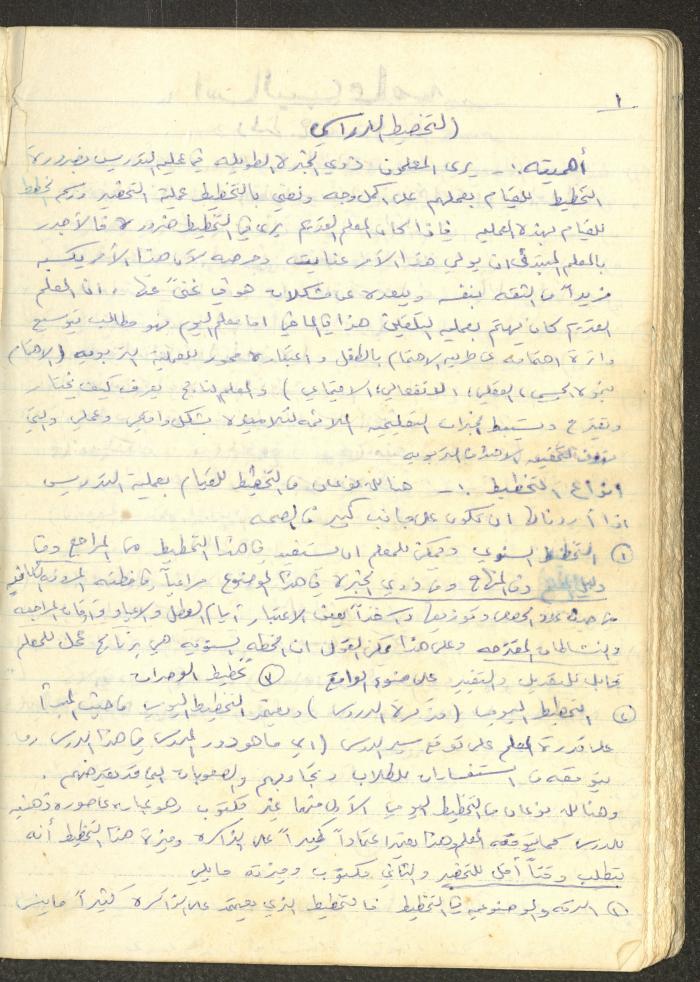 ١
التخطيط الدراسي
أهميته :- يرى المعلمون ذوي الخبرة الطويلة في عملية التدريس ضرورة
التخطيط للقيام بعملهم على أكمل وجه ونعني بالتخطيط عملية التحضير ورسم الخطط
للقيام بهذه العملية فإذا كان المعلم القديم يرى في التخطيط ضرورة فالأجدر
بالمعلم المبتدئ ان يولي هذا الأمر عنايته وحرصه لأن هذا الأمر يكسبه
مزيداً من الثقة بنفسه ويبعده عن مشكلات هو في غنىً عنها . ان المعلم
القديم كان يهتم بعملية التلقين هذا في الماضي اما معلم اليوم فهو مطالب بتوسيع
دائرة اهتمامه عن طريق الاهتمام بالطفل و اعتباره محور للعملية التربوية (الاهتمام
بنموه الجسمي ، العقلي ، الانفعالي ، الاجتماعي ) والمعلم الناجح يعرف كيف يختار
ويقترح ويستنبط الخبرات التعليمية الملائمة لتلاميذه بشكل واضح وعملي والتي
الأهداف التربوية
انواع التخطيط :- هنالك نوعان من التخطيط للقيام بعملية التدريس
اذا أردناها ان تكون على جانب كبير من الصحة
① التخطيط السنوي ويمكن للمعلم ان يستفيد في هذا التخطيط من المراجع ومن
دليل المعلم ومن المنهاج ومن ذوي الخبرة في هذا الموضوع مراعياً في خطته المرونة الكافية
من حيث عدد الحصص وتوزيعها وآخذاً بعين الاعتبار أيام العطل والاعياد وأوقات المراجعة
والنشاطات المقترحة وعلى هذا يمكن القول ان الخطة السنوية هي برنامج عمل للمعلم
قابل للتعديل والتغيير على ضوء الواقع ③ تخطيط الوحدات
② التخطيط اليومي ( مذكرة الدروس ) ويعتمد التخطيط اليومي من حيث المبدأ
على قدرة المعلم على توقع سير الدرس ( اي ما هو دور المدرس في هذا الدرس وما
يتوقعه من استفسارات للطلاب وتجاوبهم والصعوبات التي قد تعترضهم .
وهنالك نوعان من التخطيط اليومي الأول منهما غير مكتوب وهو عبارة عن صورة ذهنية
للدرس كما يتوقعه المعلم وهذا يعتمد اعتماداً كبيراً على الذاكرة وميزة هذا التخطيط أنه
يتطلب وقتاً أقل للتحضير والثاني مكتوب وميزته ما يلي
① الدقة والموضوعية في التخطيط فالتخطيط الذي يعتمد على الذاكرة كثيراً ما ينسى